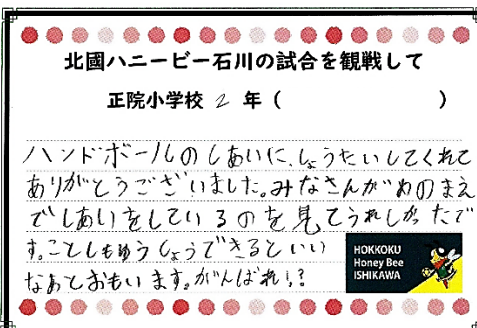 北國ハニービー石川の試合を観戦して
正院小学校 2 年（　　　　　　　　）
ハンドボールのしあいに、しょうたいしてくれて
ありがとうございました。みなさんがめのまえ
でしあいをしているのを見てうれしかったで
す。ことしもゆうしょうできるといい
なあとおもいます。がんばれ!?
HOKKOKU
Honey Bee
ISHIKAWA